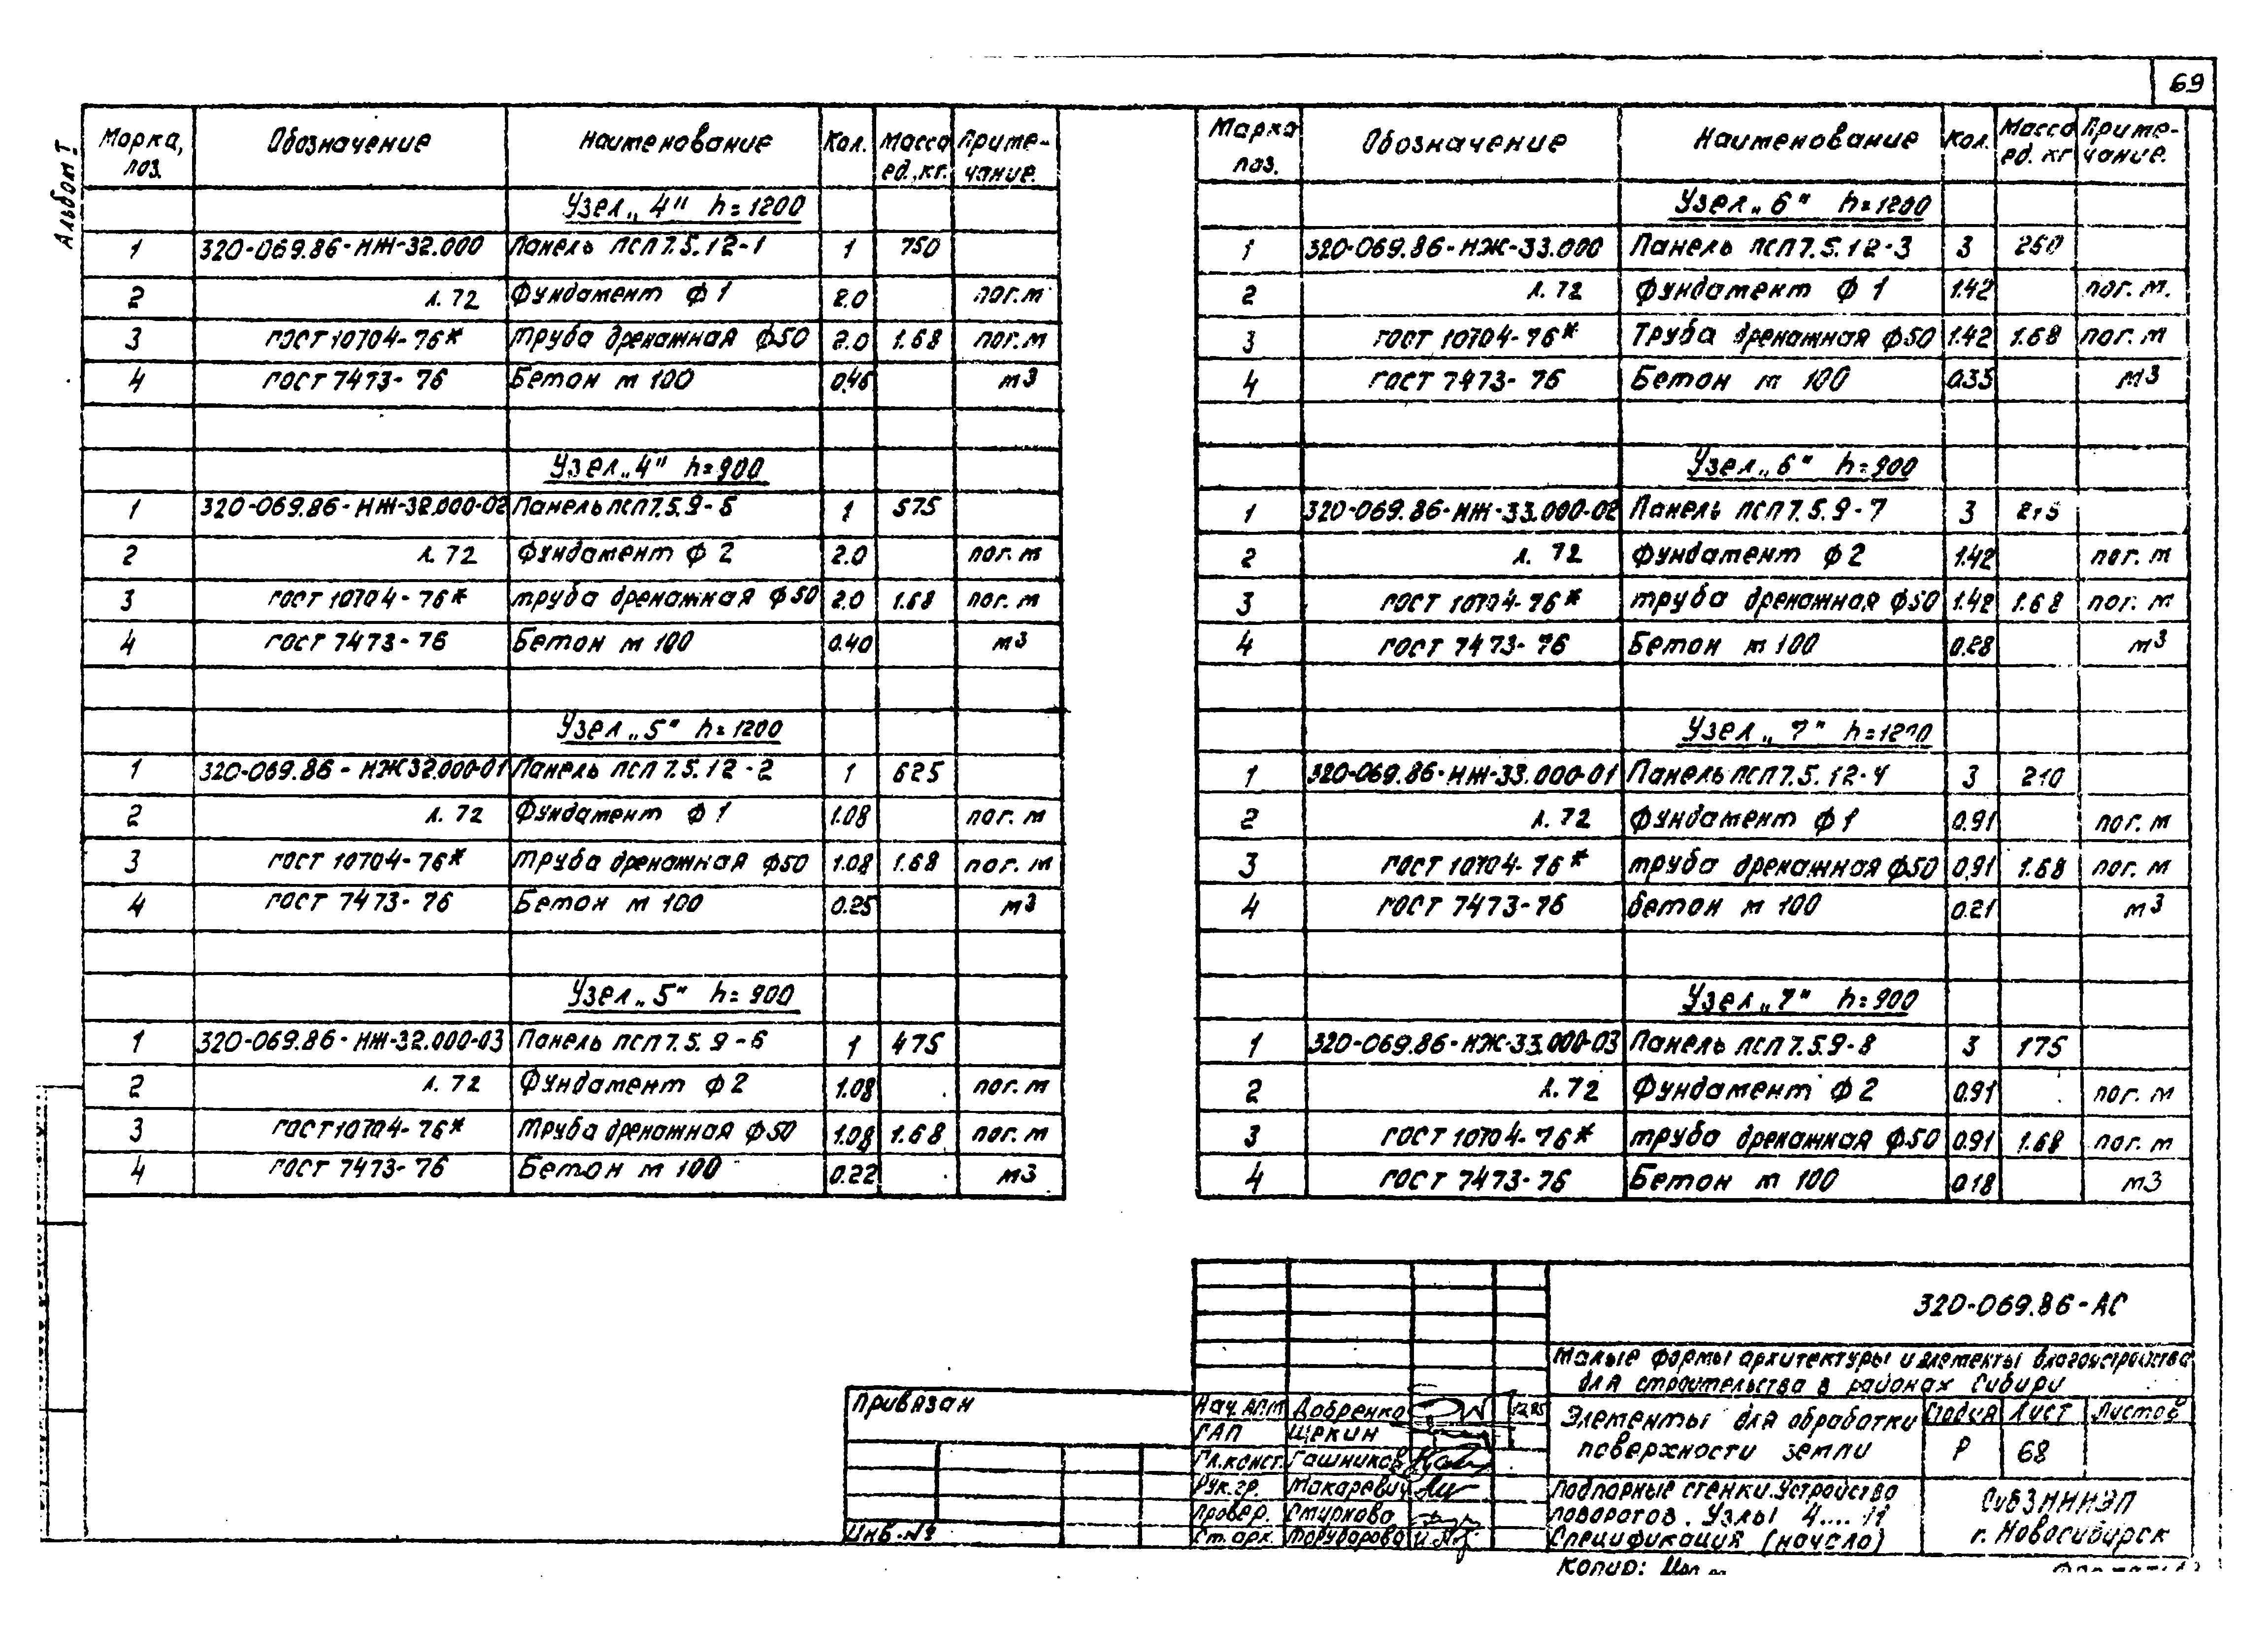 69
Альбом I
Марка, поз. Обозначение Наименование Кол. Масса ед., кг. Приме- чание.
Узел „4" h=1200
1 320-069.86-КЖ-32.000 Панель ПСП 7.5.12-1 1 750
2 л. 72 Фундамент Ф1 2.0 пог.м
3 ГОСТ 10704-76* Труба дренажная Ф50 2.0 1.68 пог.м
4 ГОСТ 7473-76 Бетон м 100 0.46 м3
Узел „4" h=900
1 320-069.86-КЖ-32.000-02 Панель ПСП 7.5.9-5 1 575
2 л. 72 Фундамент Ф2 2.0 пог.м
3 ГОСТ 10704-76* труба дренажная Ф50 2.0 1.68 пог.м
4 ГОСТ 7473-76 Бетон м 100 0.40 м3
Узел „5" h=1200
1 320-069.86-КЖ32.000-01 Панель ПСП 7.5.12-2 1 625
2 л. 72 Фундамент Ф1 1.08 пог.м
3 ГОСТ 10704-76* Труба дренажная Ф50 1.08 1.68 пог.м
4 ГОСТ 7473-76 Бетон м 100 0.25 м3
Узел „5" h=900
1 320-069.86-КЖ-32.000-03 Панель ПСП 7.5.9-6 1 475
2 л. 72 Фундамент Ф2 1.08 пог.м
3 ГОСТ 10704-76* Труба дренажная Ф50 1.08 1.68 пог.м
4 ГОСТ 7473-76 Бетон м 100 0.22 м3
Марка поз. Обозначение Наименование Кол. Масса ед. кг Приме- чание.
Узел „6" h=1200
1 320-069.86-КЖ-33.000 Панель ПСП 7.5.12-3 3 250
2 л. 72 Фундамент Ф1 1.42 пог.м.
3 ГОСТ 10704-76* Труба дренажная Ф50 1.42 1.68 пог.м
4 ГОСТ 7473-76 Бетон м 100 0.35 м3
Узел „6" h=900
1 320-069.86-КЖ-33.000-02 Панель ПСП 7.5.9-7 3
2 л. 72 Фундамент Ф2 1.42 пог.м
3 ГОСТ 10704-76* труба дренажная Ф50 1.42 1.68 пог.м
4 ГОСТ 7473-76 Бетон м 100 0.28 м3
Узел „7" h=1200
1 320-069.86-КЖ-33.000-01 Панель ПСП 7.5.12-4 3 210
2 л. 72 Фундамент Ф1 0.91 пог.м
3 ГОСТ 10704-76* труба дренажная Ф50 0.91 1.68 пог.м
4 ГОСТ 7473-76 бетон м 100 0.21 м3
Узел „7" h=900
1 320-069.86-КЖ-33.000-03 Панель ПСП 7.5.9-8 3 175
2 л. 72 Фундамент Ф2 0.91 пог.м
3 ГОСТ 10704-76* труба дренажная Ф50 0.91 1.68 пог.м
4 ГОСТ 7473-76 Бетон м 100 0.18 м3
320-069.86-АС
Малые формы архитектуры и элементы благоустройства
для строительства в районах Сибири
Привязан
Инв.№
Нач. АПМ Добренко 12.85
ГАП Щекин
Гл.конст. Гашников
Рук.гр. Макаревич
Провер. Смирнова
Ст. арх.
Элементы для обработки
поверхности земли
Стадия Лист Листов
Р 68
Подпорные стенки. Устройство
поворотов. Узлы 4....11
Спецификация (начало)
СибЗНИИЭП
г. Новосибирск
Копир: